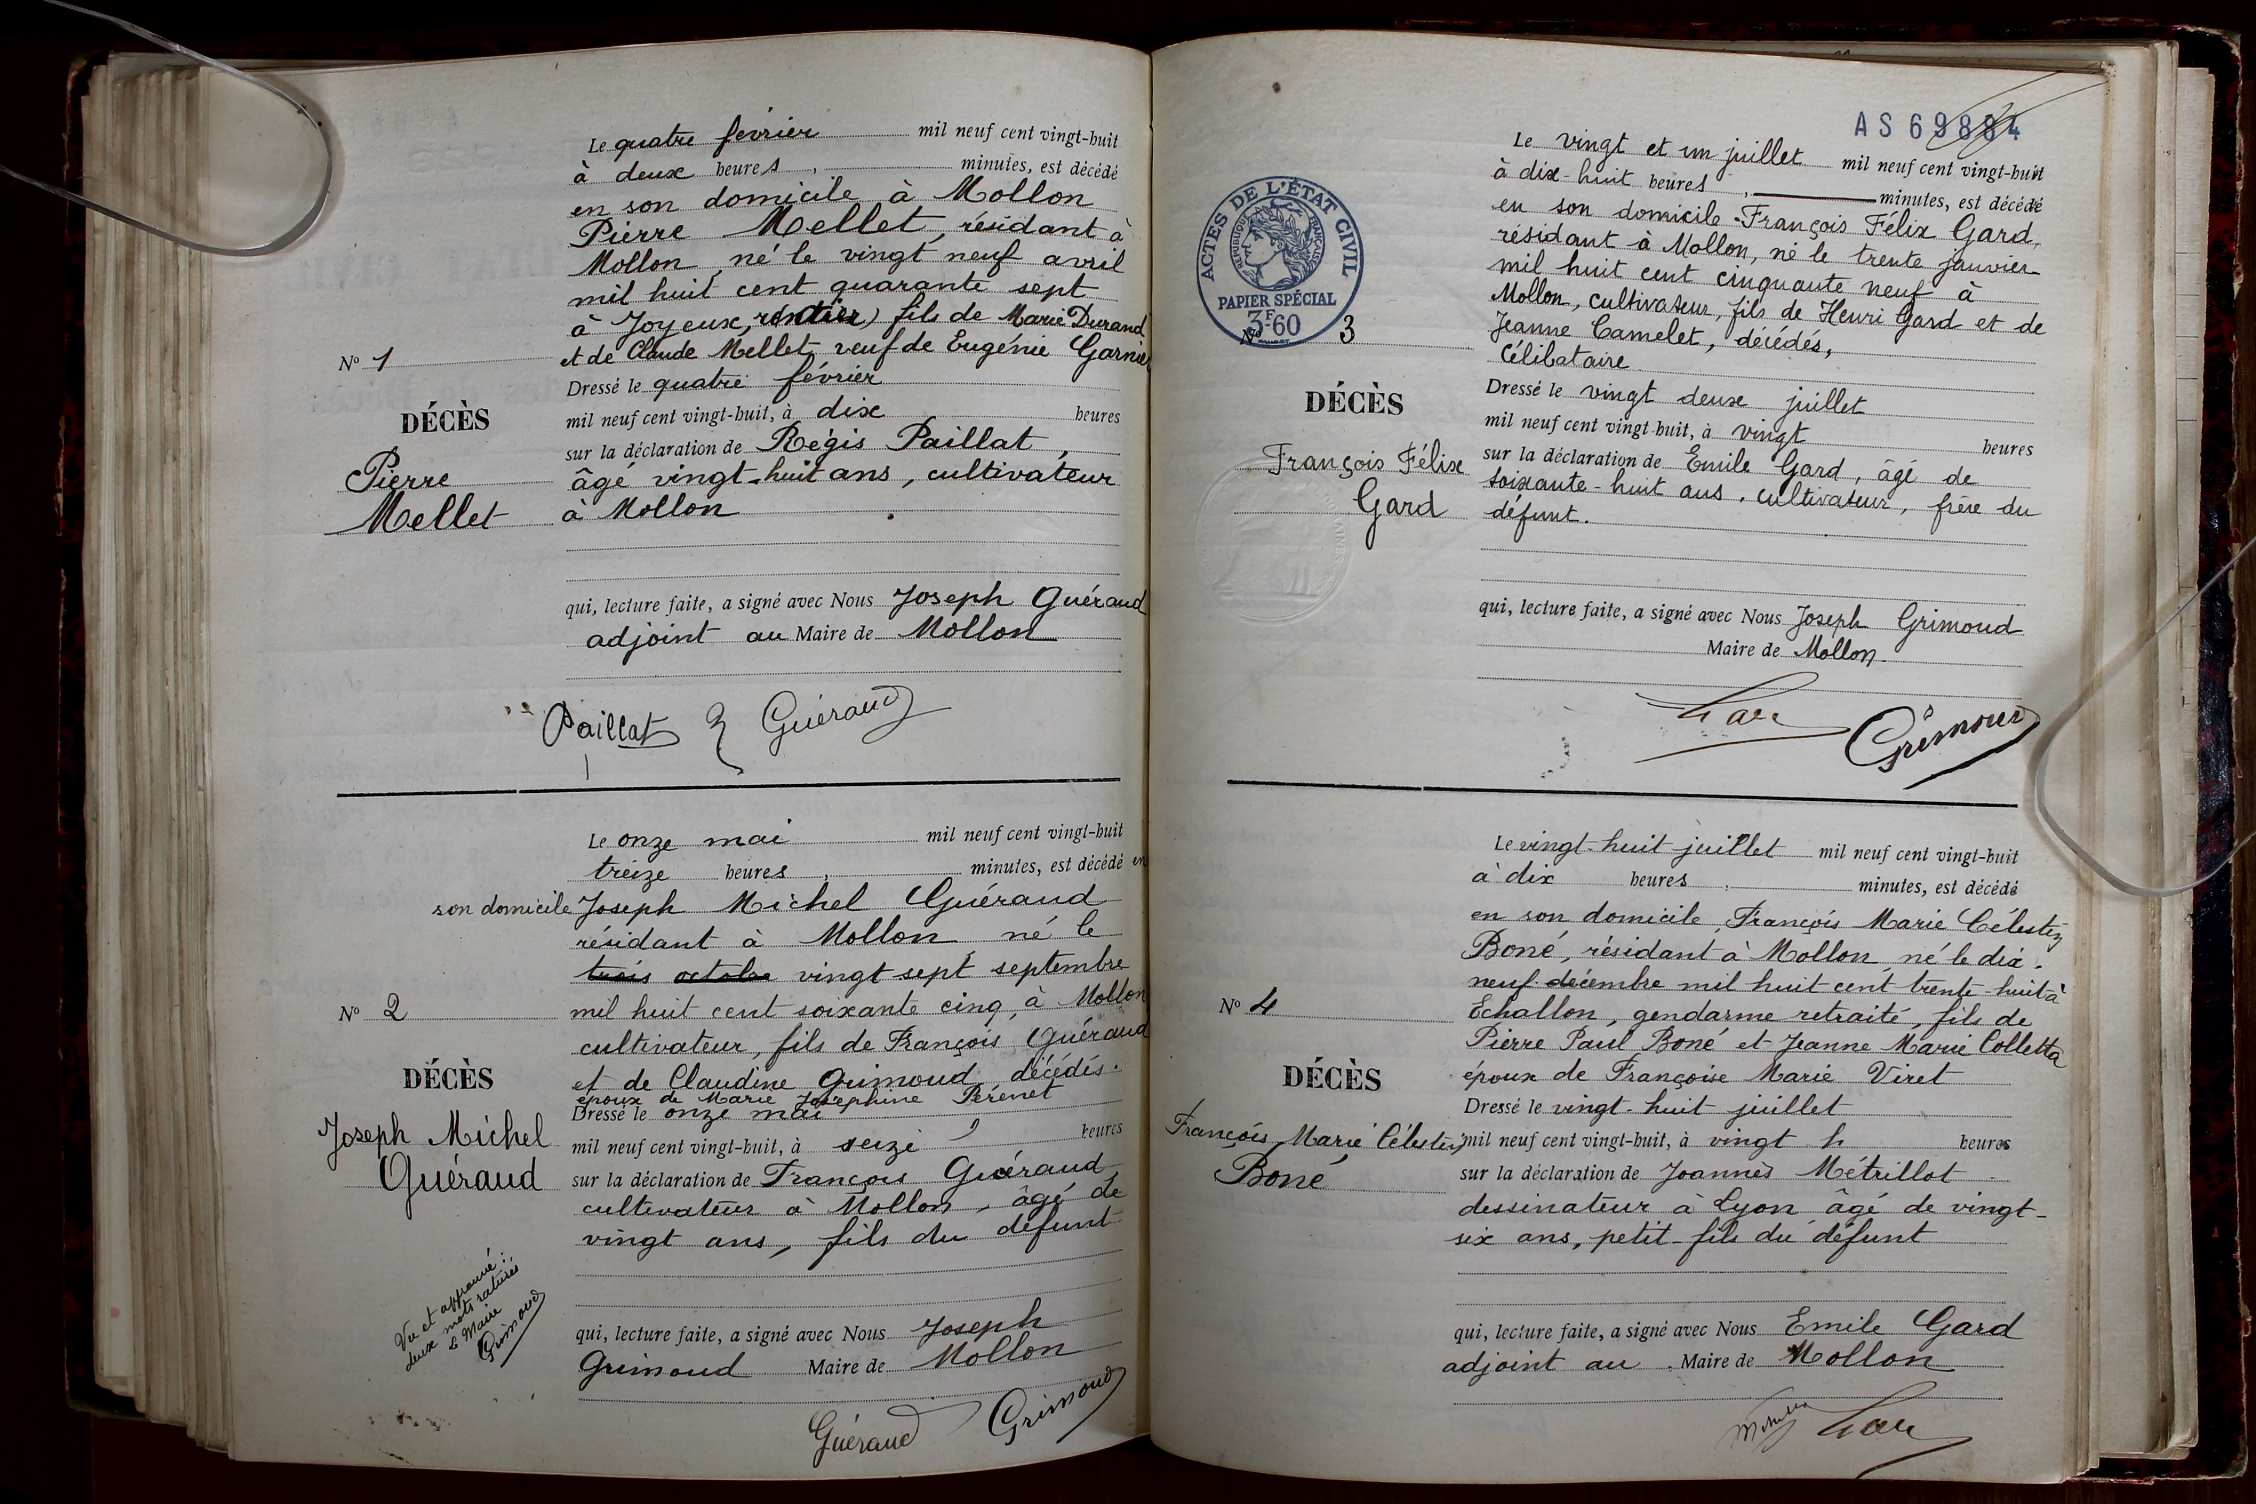 Le quatre février mil neuf cent vingt-huit
à deux heures, minutes, est décédé
en son domicile à Mollon
Pierre Mellet, résidant à
Mollon, né le vingt neuf avril
mil huit cent quarante sept
à Joyeux, rentier, fils de Marie Durand
et de Claude Mellet, veuf de Eugénie Garnier
Nº 1
DÉCÈS
Pierre
Mellet
Dressé le quatre février
mil neuf cent vingt-huit, à dix heures
sur la déclaration de Régis Paillat,
âgé vingt-huit ans, cultivateur
à Mollon
qui, lecture faite, a signé avec Nous Joseph Guéraud
adjoint au Maire de Mollon
Paillat R Guéraud
Le onze mai mil neuf cent vingt-huit
treize heures, minutes, est décédé en
son domicile Joseph Michel Guéraud
résidant à Mollon né le
trois octobre vingt sept septembre
mil huit cent soixante cinq, à Mollon
cultivateur, fils de François Guéraud
et de Claudine Grimoud, décédés.
époux de Marie Josephine Perenet
Nº 2
DÉCÈS
Joseph Michel
Guéraud
Vu et approuvé:
deux mots raturés
Le Maire
Grimoud
Dressé le onze mai
mil neuf cent vingt-huit, à seize heures
sur la déclaration de François Guéraud,
cultivateur à Mollon, âgé de
vingt ans, fils du défunt
qui, lecture faite, a signé avec Nous Joseph
Grimoud Maire de Mollon
Guéraud Grimoud
AS 69884
Le vingt et un juillet mil neuf cent vingt-huit
à dix-huit heures, minutes, est décédé
en son domicile François Félix Gard,
résidant à Mollon, né le trente janvier
mil huit cent cinquante neuf à
Mollon, cultivateur, fils de Henri Gard et de
Jeanne Camelet, décédés,
Célibataire
ACTES DE L'ÉTAT CIVIL
RÉPUBLIQUE FRANÇAISE
PAPIER SPÉCIAL
3F60
Nº 3
DÉCÈS
François Félix
Gard
Dressé le vingt deux juillet
mil neuf cent vingt-huit, à vingt heures
sur la déclaration de Emile Gard, âgé de
soixante-huit ans, cultivateur, frère du
défunt.
qui, lecture faite, a signé avec Nous Joseph Grimoud
Maire de Mollon.
Gard Grimoud
Le vingt-huit juillet mil neuf cent vingt-huit
à dix heures, minutes, est décédé
en son domicile, François Marie Célestin
Boné, résidant à Mollon, né le dix-
neuf décembre mil huit cent trente-huit à
Echallon, gendarme retraité, fils de
Pierre Paul Boné et Jeanne Marie Colletta
époux de Françoise Marie Viret
Nº 4
DÉCÈS
François Marie Célestin
Boné
Dressé le vingt-huit juillet
mil neuf cent vingt-huit, à vingt h heures
sur la déclaration de Joannès Métrillot
dessinateur à Lyon âgé de vingt-
six ans, petit-fils du défunt
qui, lecture faite, a signé avec Nous Emile Gard
adjoint au Maire de Mollon
Gard